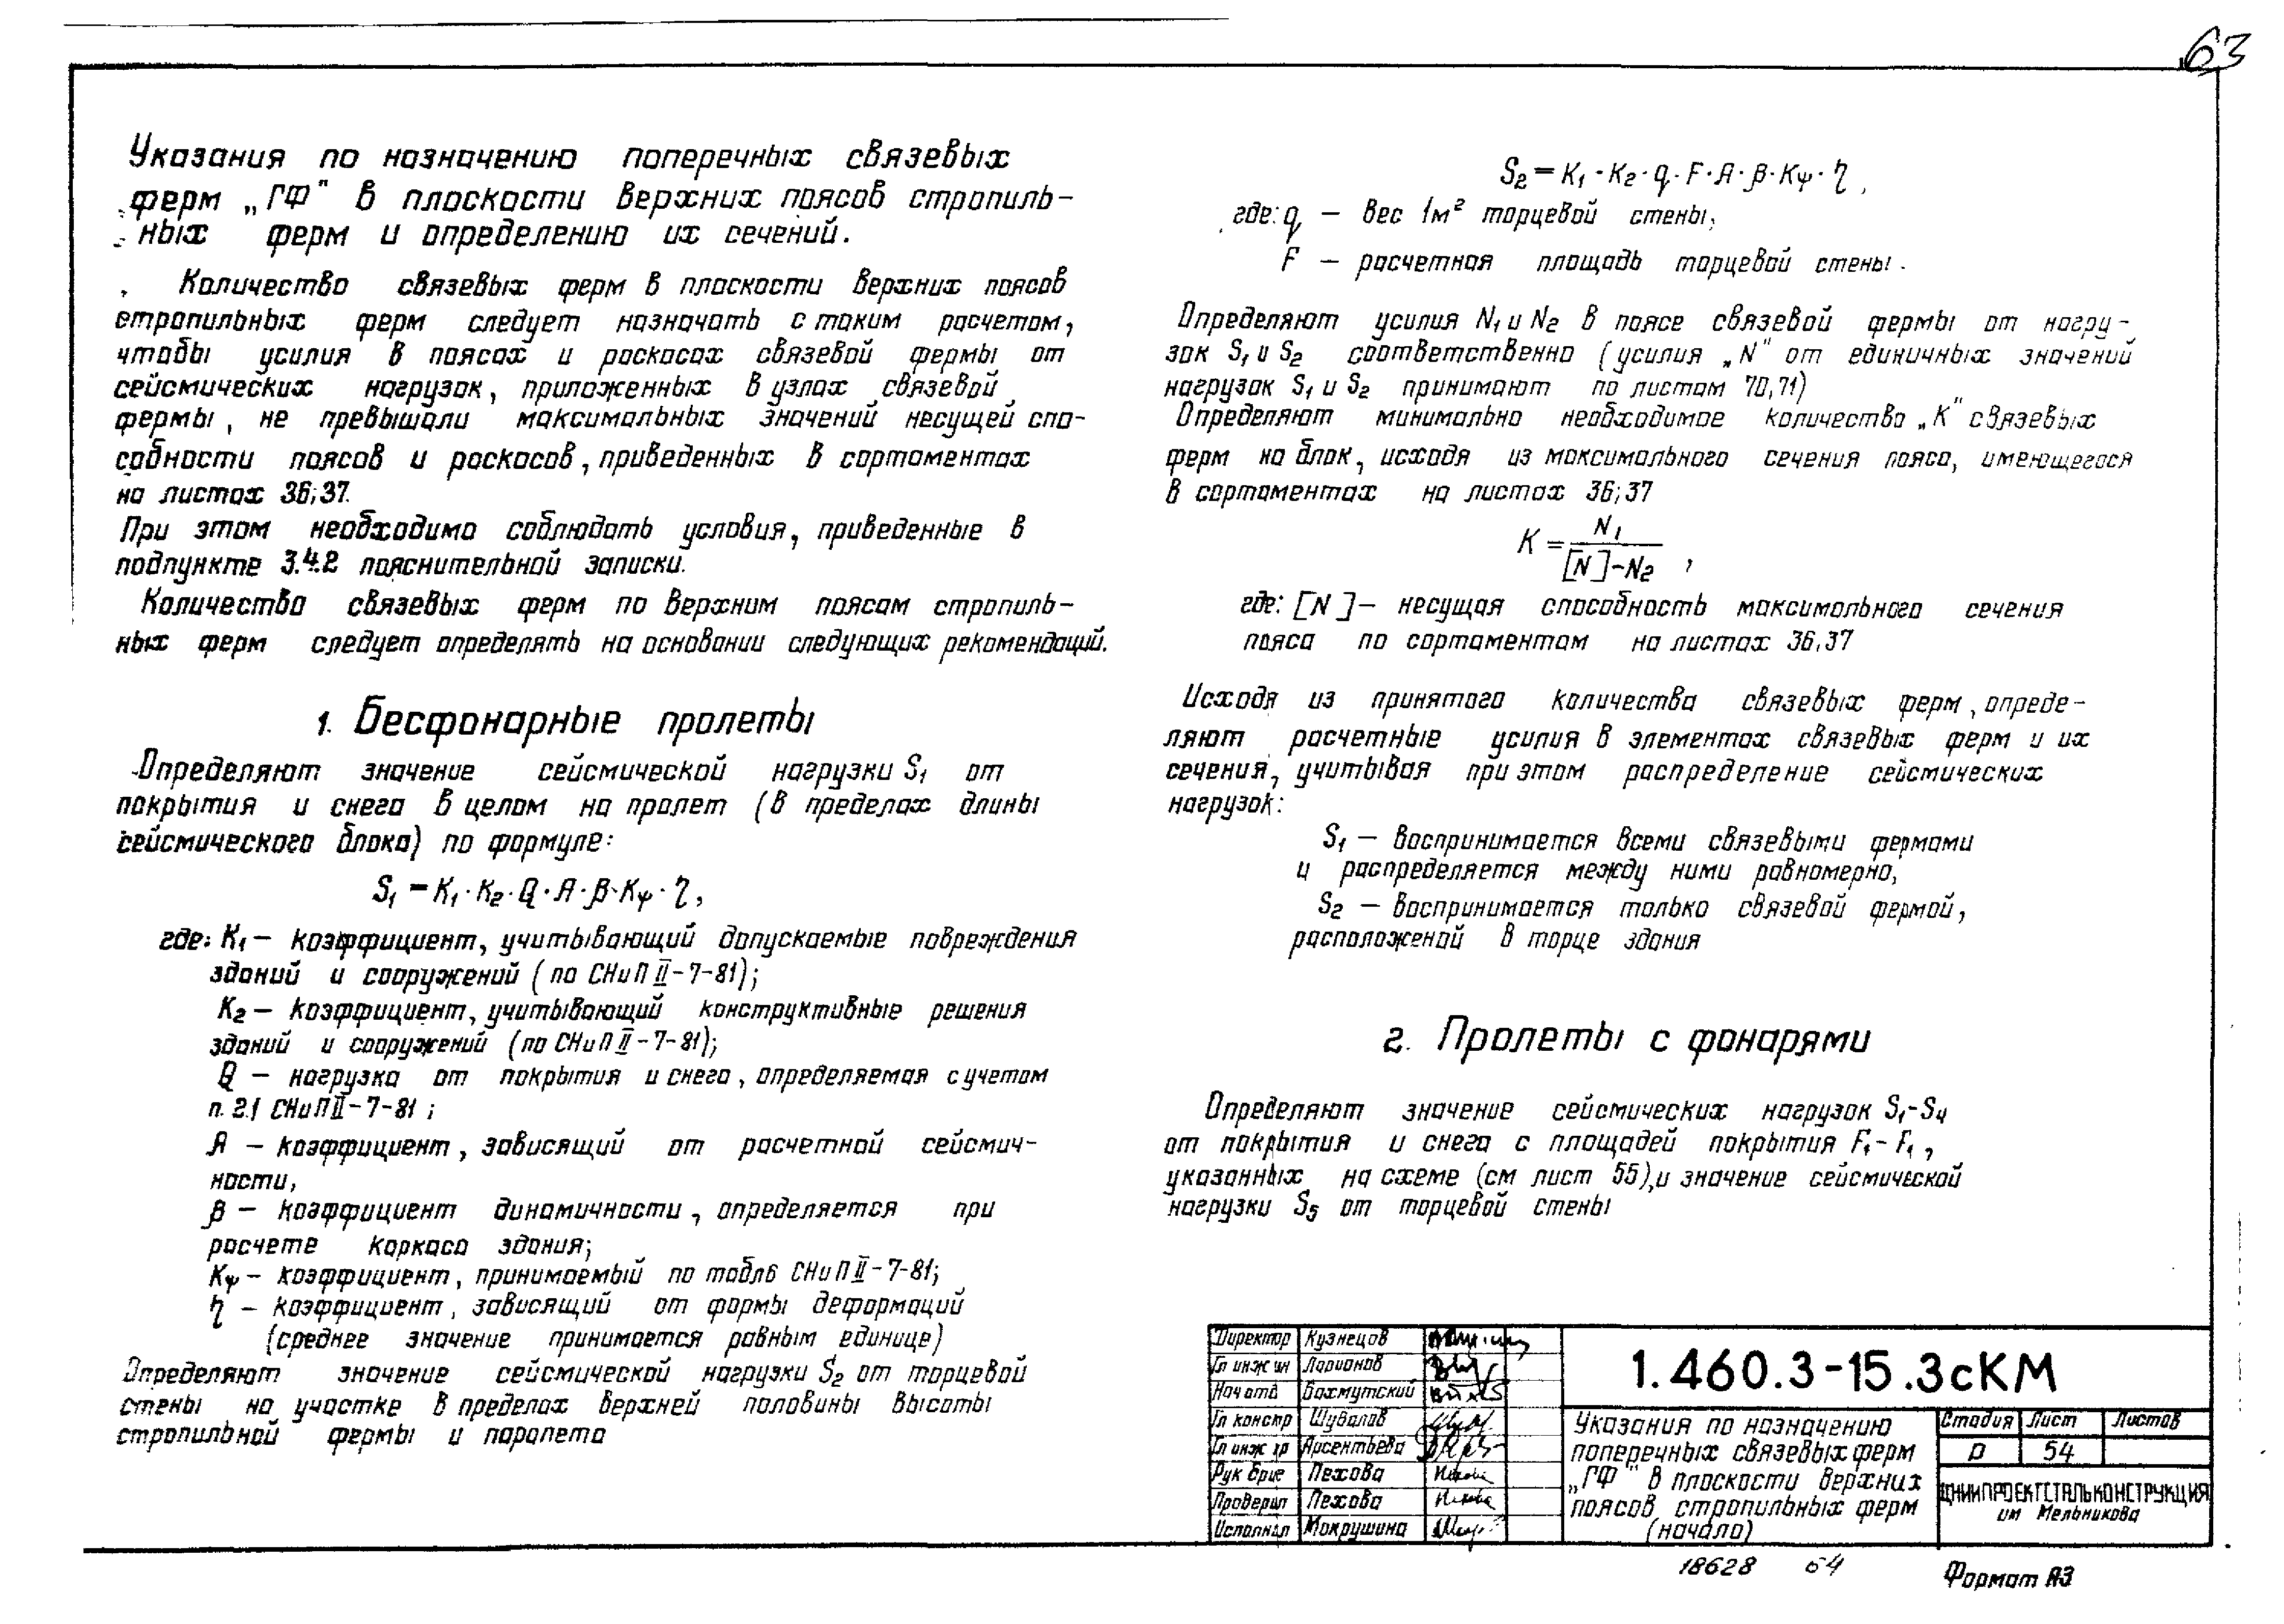 63
Указания по назначению поперечных связевых
ферм „ГФ" в плоскости верхних поясов стропиль-
ных ферм и определению их сечений.
Количество связевых ферм в плоскости верхних поясов
стропильных ферм следует назначать с таким расчетом,
чтобы усилия в поясах и раскосах связевой фермы от
сейсмических нагрузок, приложенных в узлах связевой
фермы, не превышали максимальных значений несущей спо-
собности поясов и раскосов, приведенных в сортаментах
на листах 36;37.
При этом необходимо соблюдать условия, приведенные в
подпункте 3.4.2 пояснительной записки.
Количество связевых ферм по верхним поясам стропиль-
ных ферм следует определять на основании следующих рекомендаций.
1. Бесфонарные пролеты
Определяют значение сейсмической нагрузки S₁ от
покрытия и снега в целом на пролет (в пределах длины
сейсмического блока) по формуле:
S₁ = K₁ · K₂ · Q · A · β · Kψ · η,
где: K₁ – коэффициент, учитывающий допускаемые повреждения
зданий и сооружений (по СНиП II-7-81);
K₂ – коэффициент, учитывающий конструктивные решения
зданий и сооружений (по СНиП II-7-81);
Q – нагрузка от покрытия и снега, определяемая с учетом
п. 2.1 СНиП II-7-81;
A – коэффициент, зависящий от расчетной сейсмич-
ности,
β – коэффициент динамичности, определяется при
расчете каркаса здания;
Kψ – коэффициент, принимаемый по табл6 СНиП II-7-81;
η – коэффициент, зависящий от формы деформаций
(среднее значение принимается равным единице)
Определяют значение сейсмической нагрузки S₂ от торцевой
стены на участке в пределах верхней половины высоты
стропильной фермы и парапета
S₂ = K₁ · K₂ · q · F · A · β · Kψ · η,
где: q – вес 1м² торцевой стены;
F – расчетная площадь торцевой стены.
Определяют усилия N₁ и N₂ в поясе связевой фермы от нагру-
зок S₁ и S₂ соответственно (усилия „N" от единичных значений
нагрузок S₁ и S₂ принимают по листам 70,71)
Определяют минимально необходимое количество „К" связевых
ферм на блок, исходя из максимального сечения пояса, имеющегося
в сортаментах на листах 36;37
K = N₁ / ([N]-N₂),
где: [N] – несущая способность максимального сечения
пояса по сортаментам на листах 36,37
Исходя из принятого количества связевых ферм, опреде-
ляют расчетные усилия в элементах связевых ферм и их
сечения, учитывая при этом распределение сейсмических
нагрузок:
S₁ – воспринимается всеми связевыми фермами
и распределяется между ними равномерно,
S₂ – воспринимается только связевой фермой,
расположеной в торце здания
2. Пролеты с фонарями
Определяют значение сейсмических нагрузок S₁-S₄
от покрытия и снега с площадей покрытия F₁-F₁,
указанных на схеме (см лист 55), и значение сейсмической
нагрузки S₅ от торцевой стены
Директор Кузнецов
Гл инж ин Ларионов
Нач отд Бахмутский
Гл констр Шувалов
Гл инж пр Арсентьева
Рук бриг Пехова
Проверил Пехова
Исполнил Мокрушина
1.460.3-15.3сКМ
Указания по назначению
поперечных связевых ферм
„ГФ" в плоскости верхних
поясов стропильных ферм
(начало)
Стадия Лист Листов
Р 54
ЦНИИПРОЕКТСТАЛЬКОНСТРУКЦИЯ
им Мельникова
18628 64
Формат А3